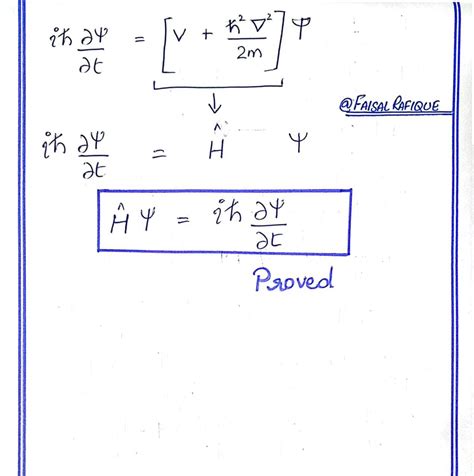 iħ ∂Ψ/∂t = [V + ħ²∇²/2m] Ψ
↓
@FAISAL RAFIQUE
iħ ∂Ψ/∂t = Ĥ Ψ
ĤΨ = iħ ∂Ψ/∂t
Proved